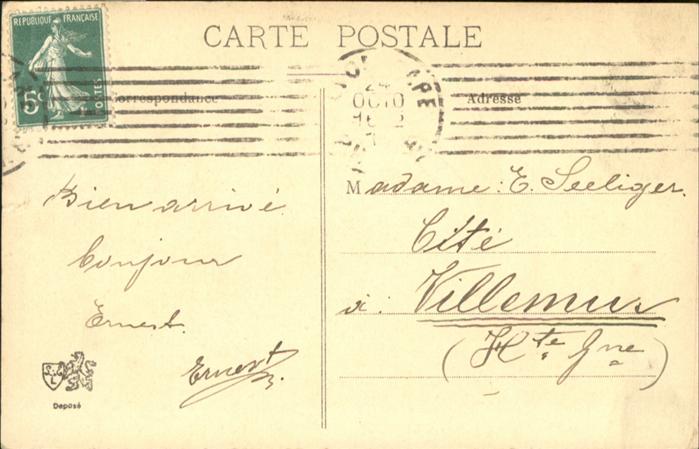 CARTE POSTALE
REPUBLIQUE FRANÇAISE
POSTES
5c
24
OCT 10
Correspondance
Adresse
Bien arrivé
bonjour
Ernest.
Ernest
Madame: E. Seeliger.
Cité
à: Villemur
(Hte Gne)
Deposé